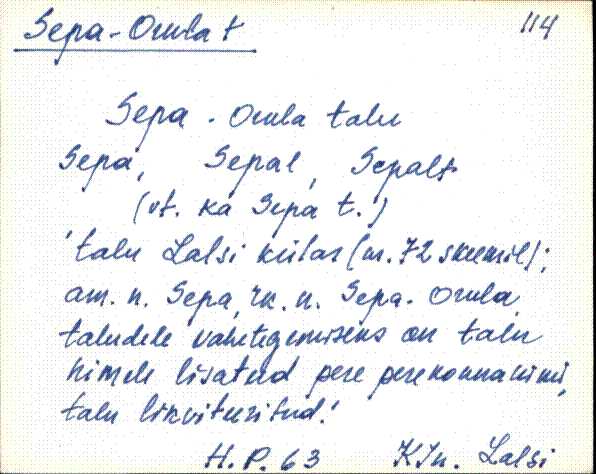 Sepa-Orula t
114
Sepa-Orula talu
Sepa, Sepal, Sepalt
(vt. ka Sepa t.)
'talu Lalsi külas (nr. 72 skeemil);
am. n. Sepa, rk. n. Sepa-Orula,
taludele vahetegemiseks on talu
nimele lisatud pere perekonnanimi,
talu likvideeritud.'
H.P. 63 KJn. Lalsi